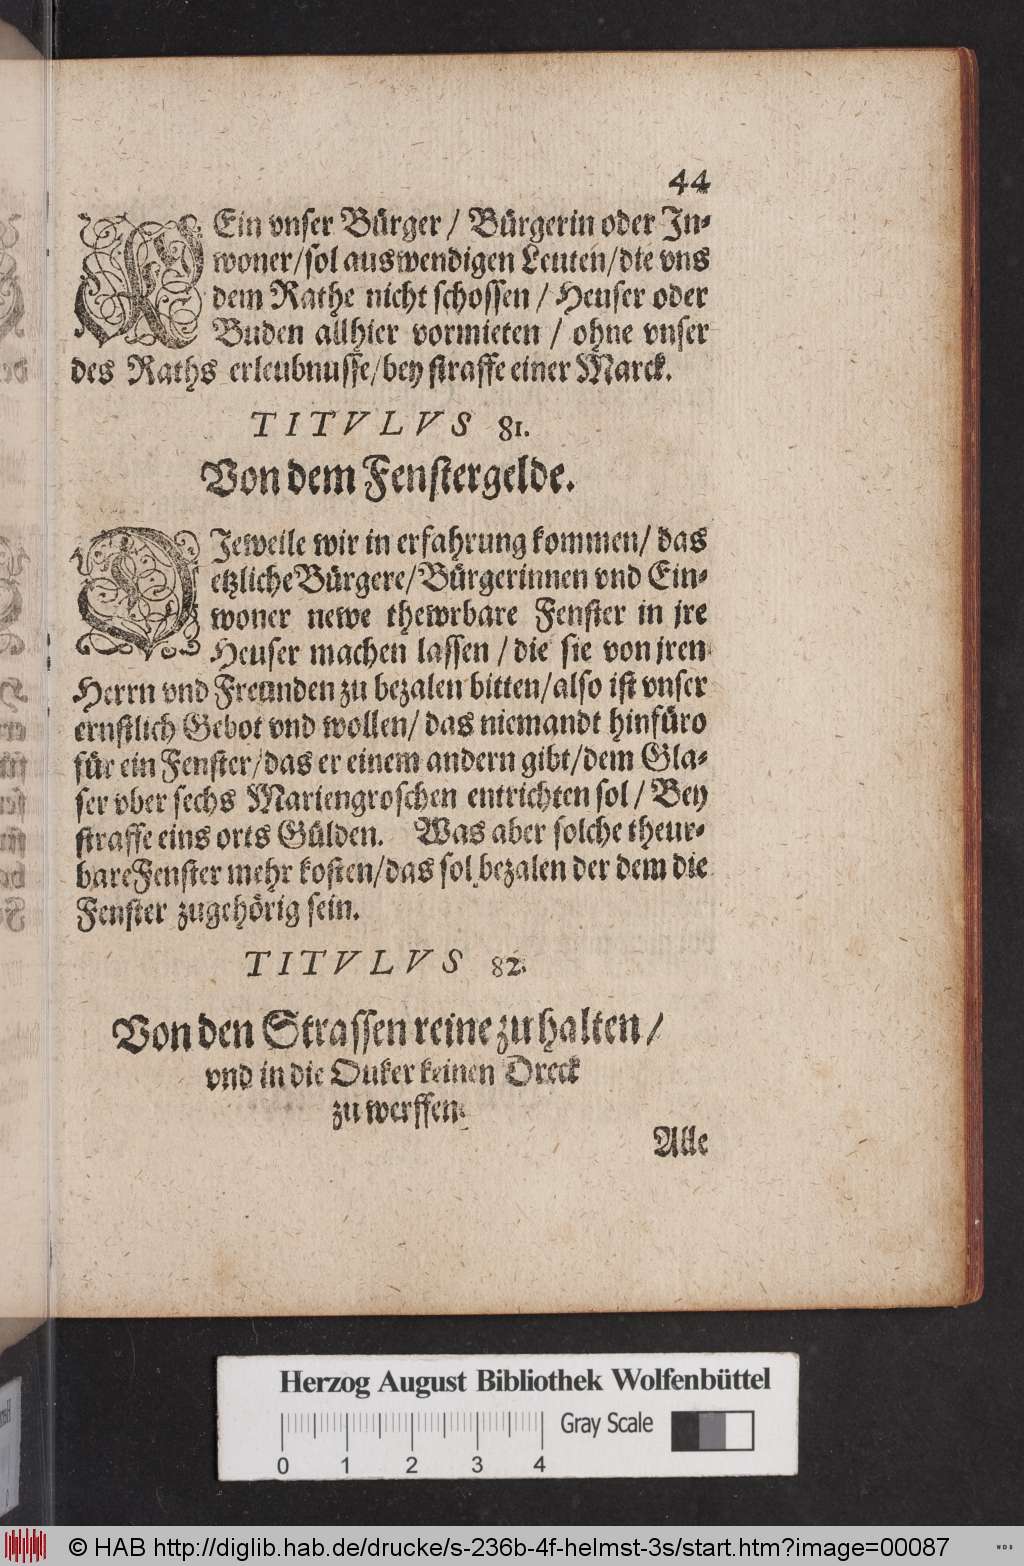 44
KEin vnser Bürger / Bürgerin oder In-
woner / sol auswendigen Leuten / die vns
dem Rathe nicht schossen / Heuser oder
Buden allhier vormieten / ohne vnser
des Raths erleubnusse / bey straffe einer Marck.
TITVLVS 81.
Von dem Fenstergelde.
DJeweile wir in erfahrung kommen / das
etzliche Bürgere / Bürgerinnen vnd Ein-
woner newe thewrbare Fenster in jre
Heuser machen lassen / die sie von jren
Herrn vnd Freunden zu bezalen bitten / also ist vnser
ernstlich Gebot vnd wollen / das niemandt hinfüro
für ein Fenster / das er einem andern gibt / dem Gla-
ser vber sechs Mariengroschen entrichten sol / Bey
straffe eins orts Gülden. Was aber solche theur-
bare Fenster mehr kosten / das sol bezalen der dem die
Fenster zugehörig sein.
TITVLVS 82.
Von den Strassen reine zu halten /
vnd in die Ouker keinen Dreck
zu werffen.
Alle
Herzog August Bibliothek Wolfenbüttel
Gray Scale
0 1 2 3 4
© HAB http://diglib.hab.de/drucke/s-236b-4f-helmst-3s/start.htm?image=00087